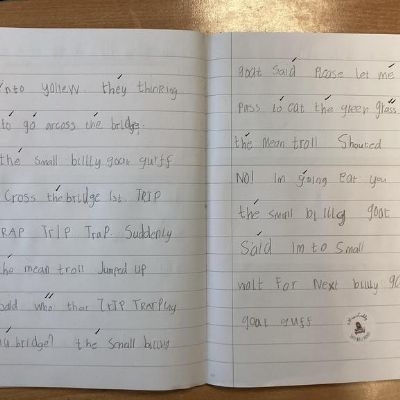 nto yollew they thinking
to go arcoss the bridge
the small billy goat gurff
Cross the bridge 1st TRIP
RAP TrIP TraP Suddenly
he mean troll Jumped up
said who that TrIP TRAPing
bridge? the small billy
goat said Please let me
Pass to eat the green glass
the mean troll Shouted
NO! Im going eat you
the small billig goat
Said Im to Small
wait For Next billy go
goat guff